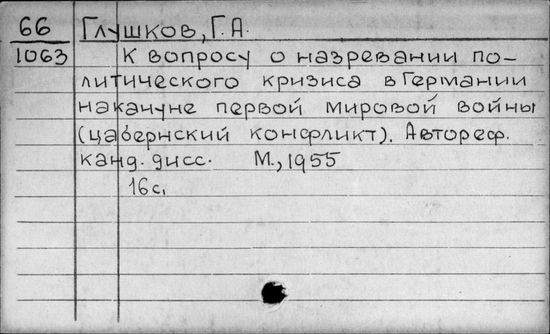 66 Глушков, Г.А.
1063 К вопросу о назревании по-
литического кризиса в Германии
накануне первой мировой войны
(цабернский конфликт). Автореф.
канд. дисс. М., 1955
16с.